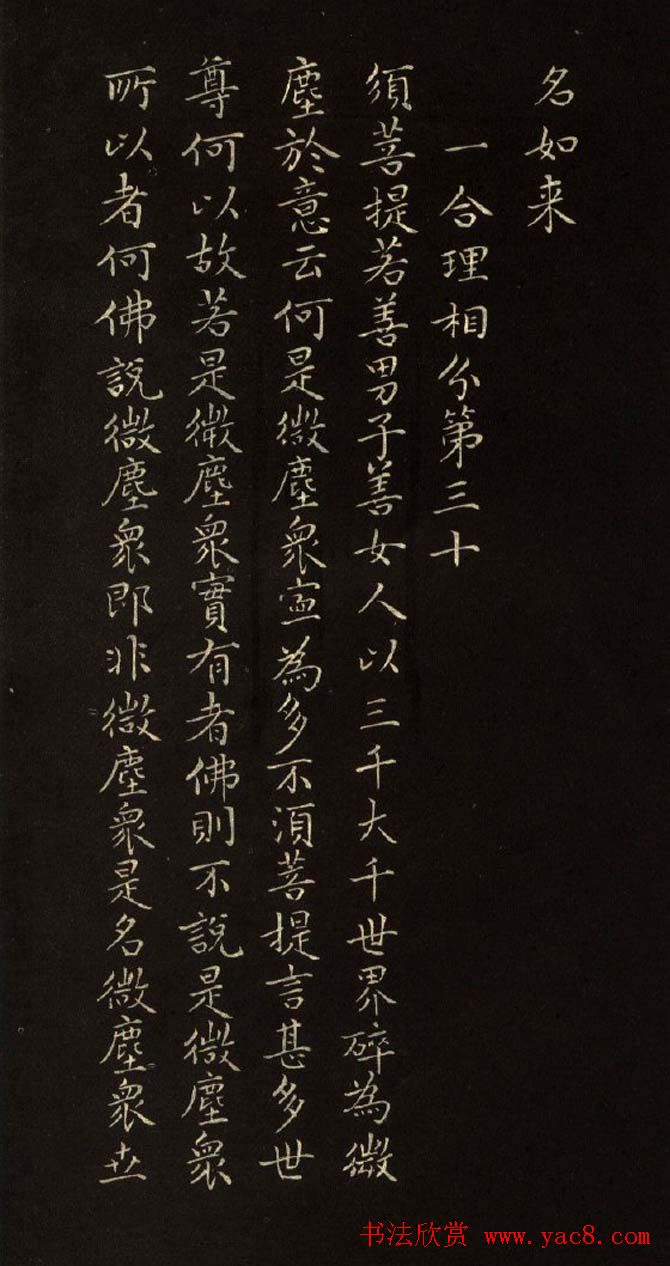 名如来
一合理相分第三十
須菩提若善男子善女人以三千大千世界碎為微
塵於意云何是微塵衆寔為多不須菩提言甚多世
尊何以故若是微塵衆實有者佛則不說是微塵衆
所以者何佛說微塵衆即非微塵衆是名微塵衆世
书法欣赏 www.yac8.com